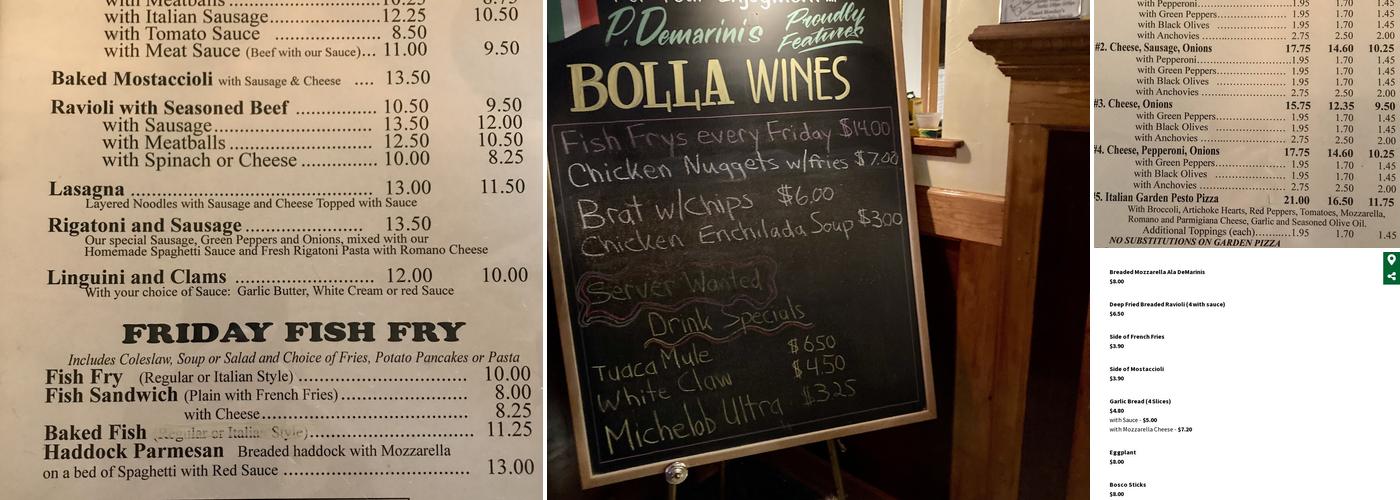 with Italian Sausage ............... 12.25 10.50
with Tomato Sauce ................. 8.50
with Meat Sauce (Beef with our Sauce)... 11.00 9.50
Baked Mostaccioli with Sausage & Cheese .... 13.50
Ravioli with Seasoned Beef .................. 10.50 9.50
with Sausage................................... 13.50 12.00
with Meatballs ................................ 12.50 10.50
with Spinach or Cheese .................. 10.00 8.25
Lasagna ............................................... 13.00 11.50
Layered Noodles with Sausage and Cheese Topped with Sauce
Rigatoni and Sausage........................... 13.50
Our special Sausage, Green Peppers and Onions, mixed with our
Homemade Spaghetti Sauce and Fresh Rigatoni Pasta with Romano Cheese
Linguini and Clams ............................ 12.00 10.00
With your choice of Sauce: Garlic Butter, White Cream or red Sauce
FRIDAY FISH FRY
Includes Coleslaw, Soup or Salad and Choice of Fries, Potato Pancakes or Pasta
Fish Fry (Regular or Italian Style) .................................. 10.00
Fish Sandwich (Plain with French Fries)......................... 8.00
with Cheese......................................... 8.25
Baked Fish (Regular or Italian Style)................................. 11.25
Haddock Parmesan Breaded haddock with Mozzarella
on a bed of Spaghetti with Red Sauce ..................................... 13.00
P. Demarini's Proudly
Features
BOLLA WINES
Fish Frys every Friday $14.00
Chicken Nuggets w/fries $7.00
Brat w/Chips $6.00
Chicken Enchilada Soup $3.00
Server Wanted
Drink Specials
Tuaca Mule $6.50
White Claw $4.50
Michelob Ultra $3.25
with Pepperoni 1.95 1.70 1.45
with Green Peppers 1.95 1.70 1.45
with Black Olives 1.95 1.70 1.45
with Anchovies 2.75 2.50 2.00
#2. Cheese, Sausage, Onions 17.75 14.60 10.25
with Pepperoni 1.95 1.70 1.45
with Green Peppers 1.95 1.70 1.45
with Black Olives 1.95 1.70 1.45
with Anchovies 2.75 2.50 2.00
#3. Cheese, Onions 15.75 12.35 9.50
with Green Peppers 1.95 1.70 1.45
with Black Olives 1.95 1.70 1.45
with Anchovies 2.75 2.50 2.00
#4. Cheese, Pepperoni, Onions 17.75 14.60 10.25
with Green Peppers 1.95 1.70 1.45
with Black Olives 1.95 1.70 1.45
with Anchovies 2.75 2.50 2.00
#5. Italian Garden Pesto Pizza 21.00 16.50 11.75
With Broccoli, Artichoke Hearts, Red Peppers, Tomatoes, Mozzarella,
Romano and Parmigiana Cheese, Garlic and Seasoned Olive Oil.
Additional Toppings (each)...........1.95 1.70 1.45
NO SUBSTITUTIONS ON GARDEN PIZZA
Breaded Mozzarella Ala DeMarinis
$8.00
Deep Fried Breaded Ravioli (4 with sauce)
$6.50
Side of French Fries
$3.90
Side of Mostaccioli
$3.90
Garlic Bread (4 Slices)
$4.80
with Sauce - $5.00
with Mozzarella Cheese - $7.20
Eggplant
$8.00
Bosco Sticks
$8.00